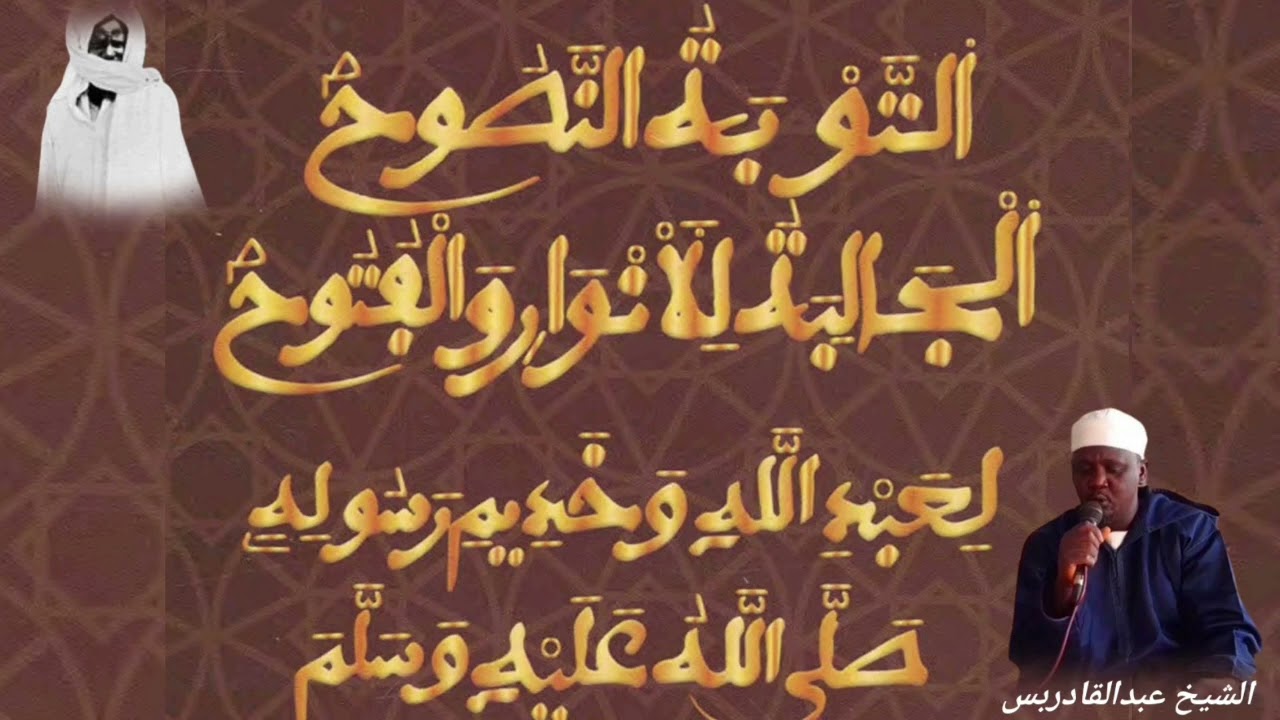 التَّوْبَةُ النَّصُوحُ
الْجَالِبَةُ لِلَانْوَارِ وَالْفُتُوحُ
لِعَبْدِ اللَّهِ وَخَدِيمِ رَسُولِهِ
صَلَّى اللَّهُ عَلَيْهِ وَسَلَّمَ
الشيخ عبدالقادربس